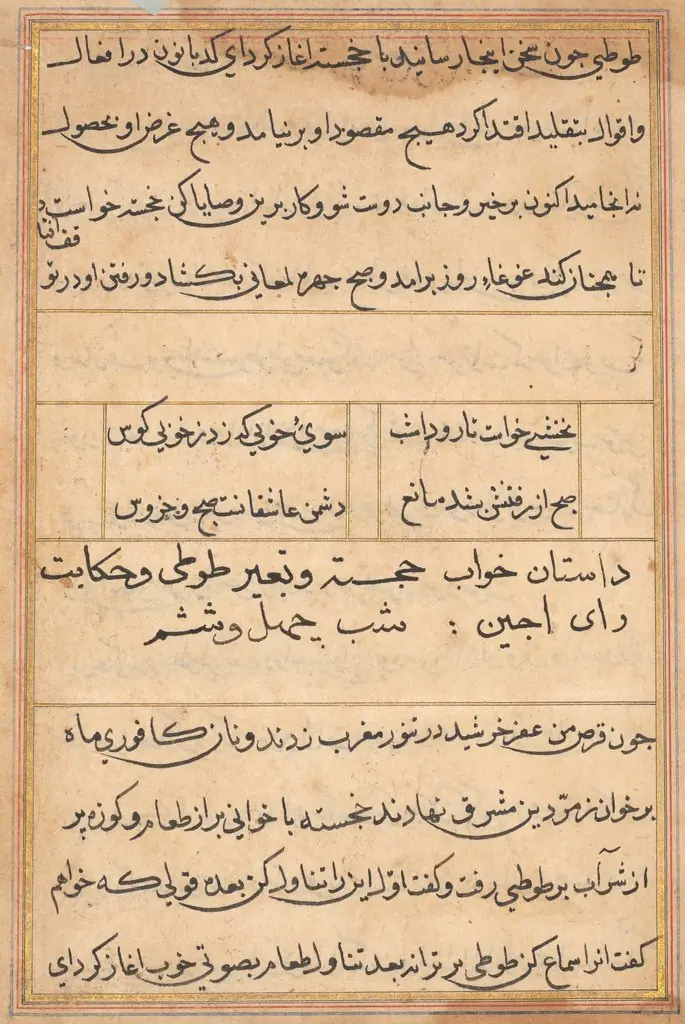 طوطی جون سخن اینجا رسانید با خجسته اغاز کرد ای کدبانو در افعال
واقوال بتقلید اقتدا کرد هیچ مقصود او بر نیامد و هیچ غرض او بحصول
نه انجامید اکنون برخیز و جانب دوست شو و کار برین وصایا کن خجسته خواست
تا همچنان کند غوغاء روز برامد و صبح چهره لمعانی بکشاد و رفتن او در توقف افتاد
نخشبی خواست تا رود امشب سوئ خوبی که زد ز خوبی کوس
صبح از رفتنش بشد مانع دشمن عاشقانست صبح و خروس
داستان خواب خجسته و تعبیر طوطی و حکایت
رای اجین : شب چهل و ششم
جون قرص من عفر خرشید در تنور مغرب زدند و نان کافوری ماه
بر خوان زمردین مشرق نهادند خجسته با خوانی پر از طعام و کوزه پر
از شرآب بر طوطی رفت و کفت اول این را تناول کن بعده قولی که خواهم
کفت انرا سماع کن طوطی بعد تناول طعام بصوتی خوب اغاز کرد ای